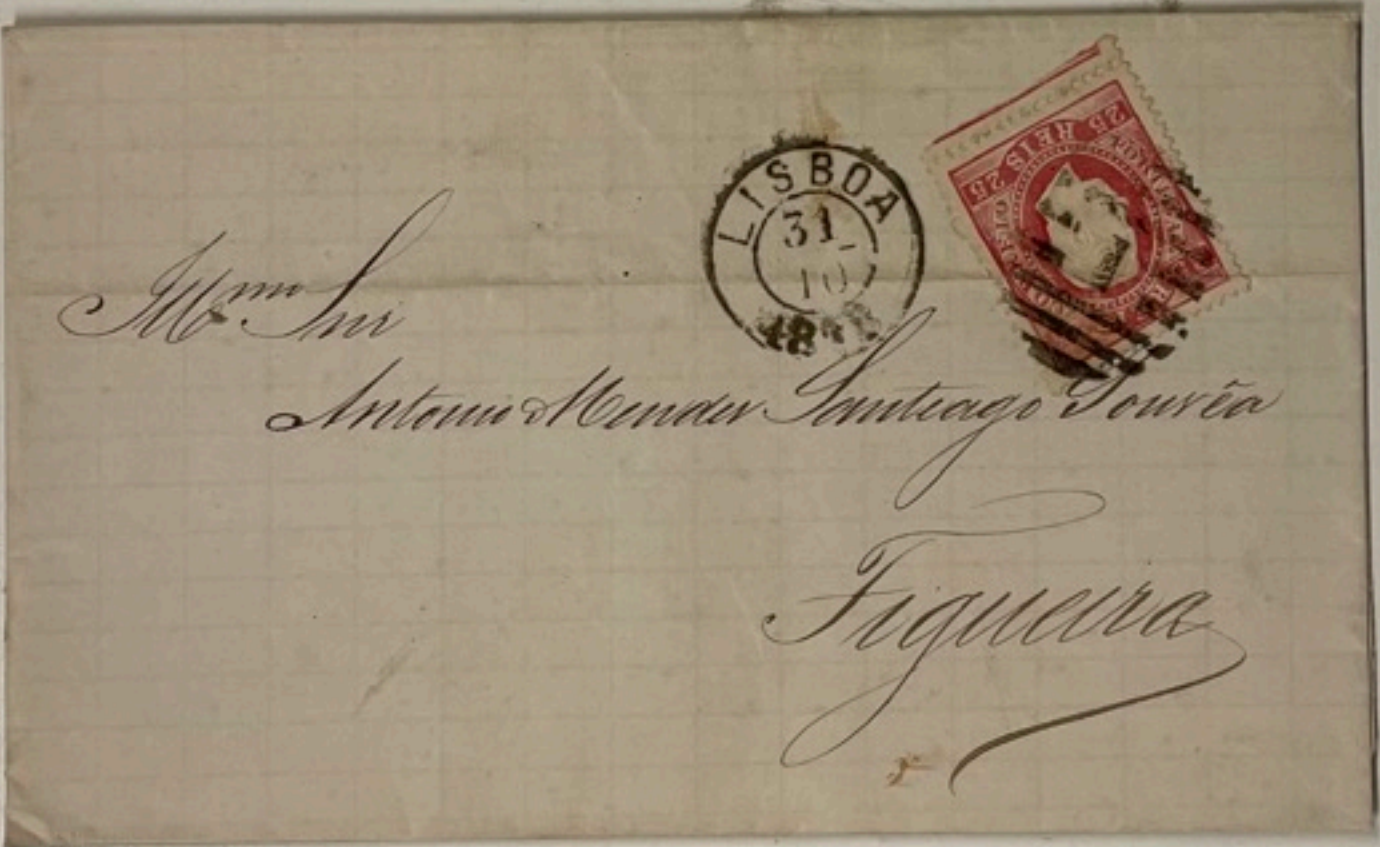 LISBOA
31
10
25 REIS 25
Illmo Snr
Antonio Mendes Santiago Gouvêa
Figueira